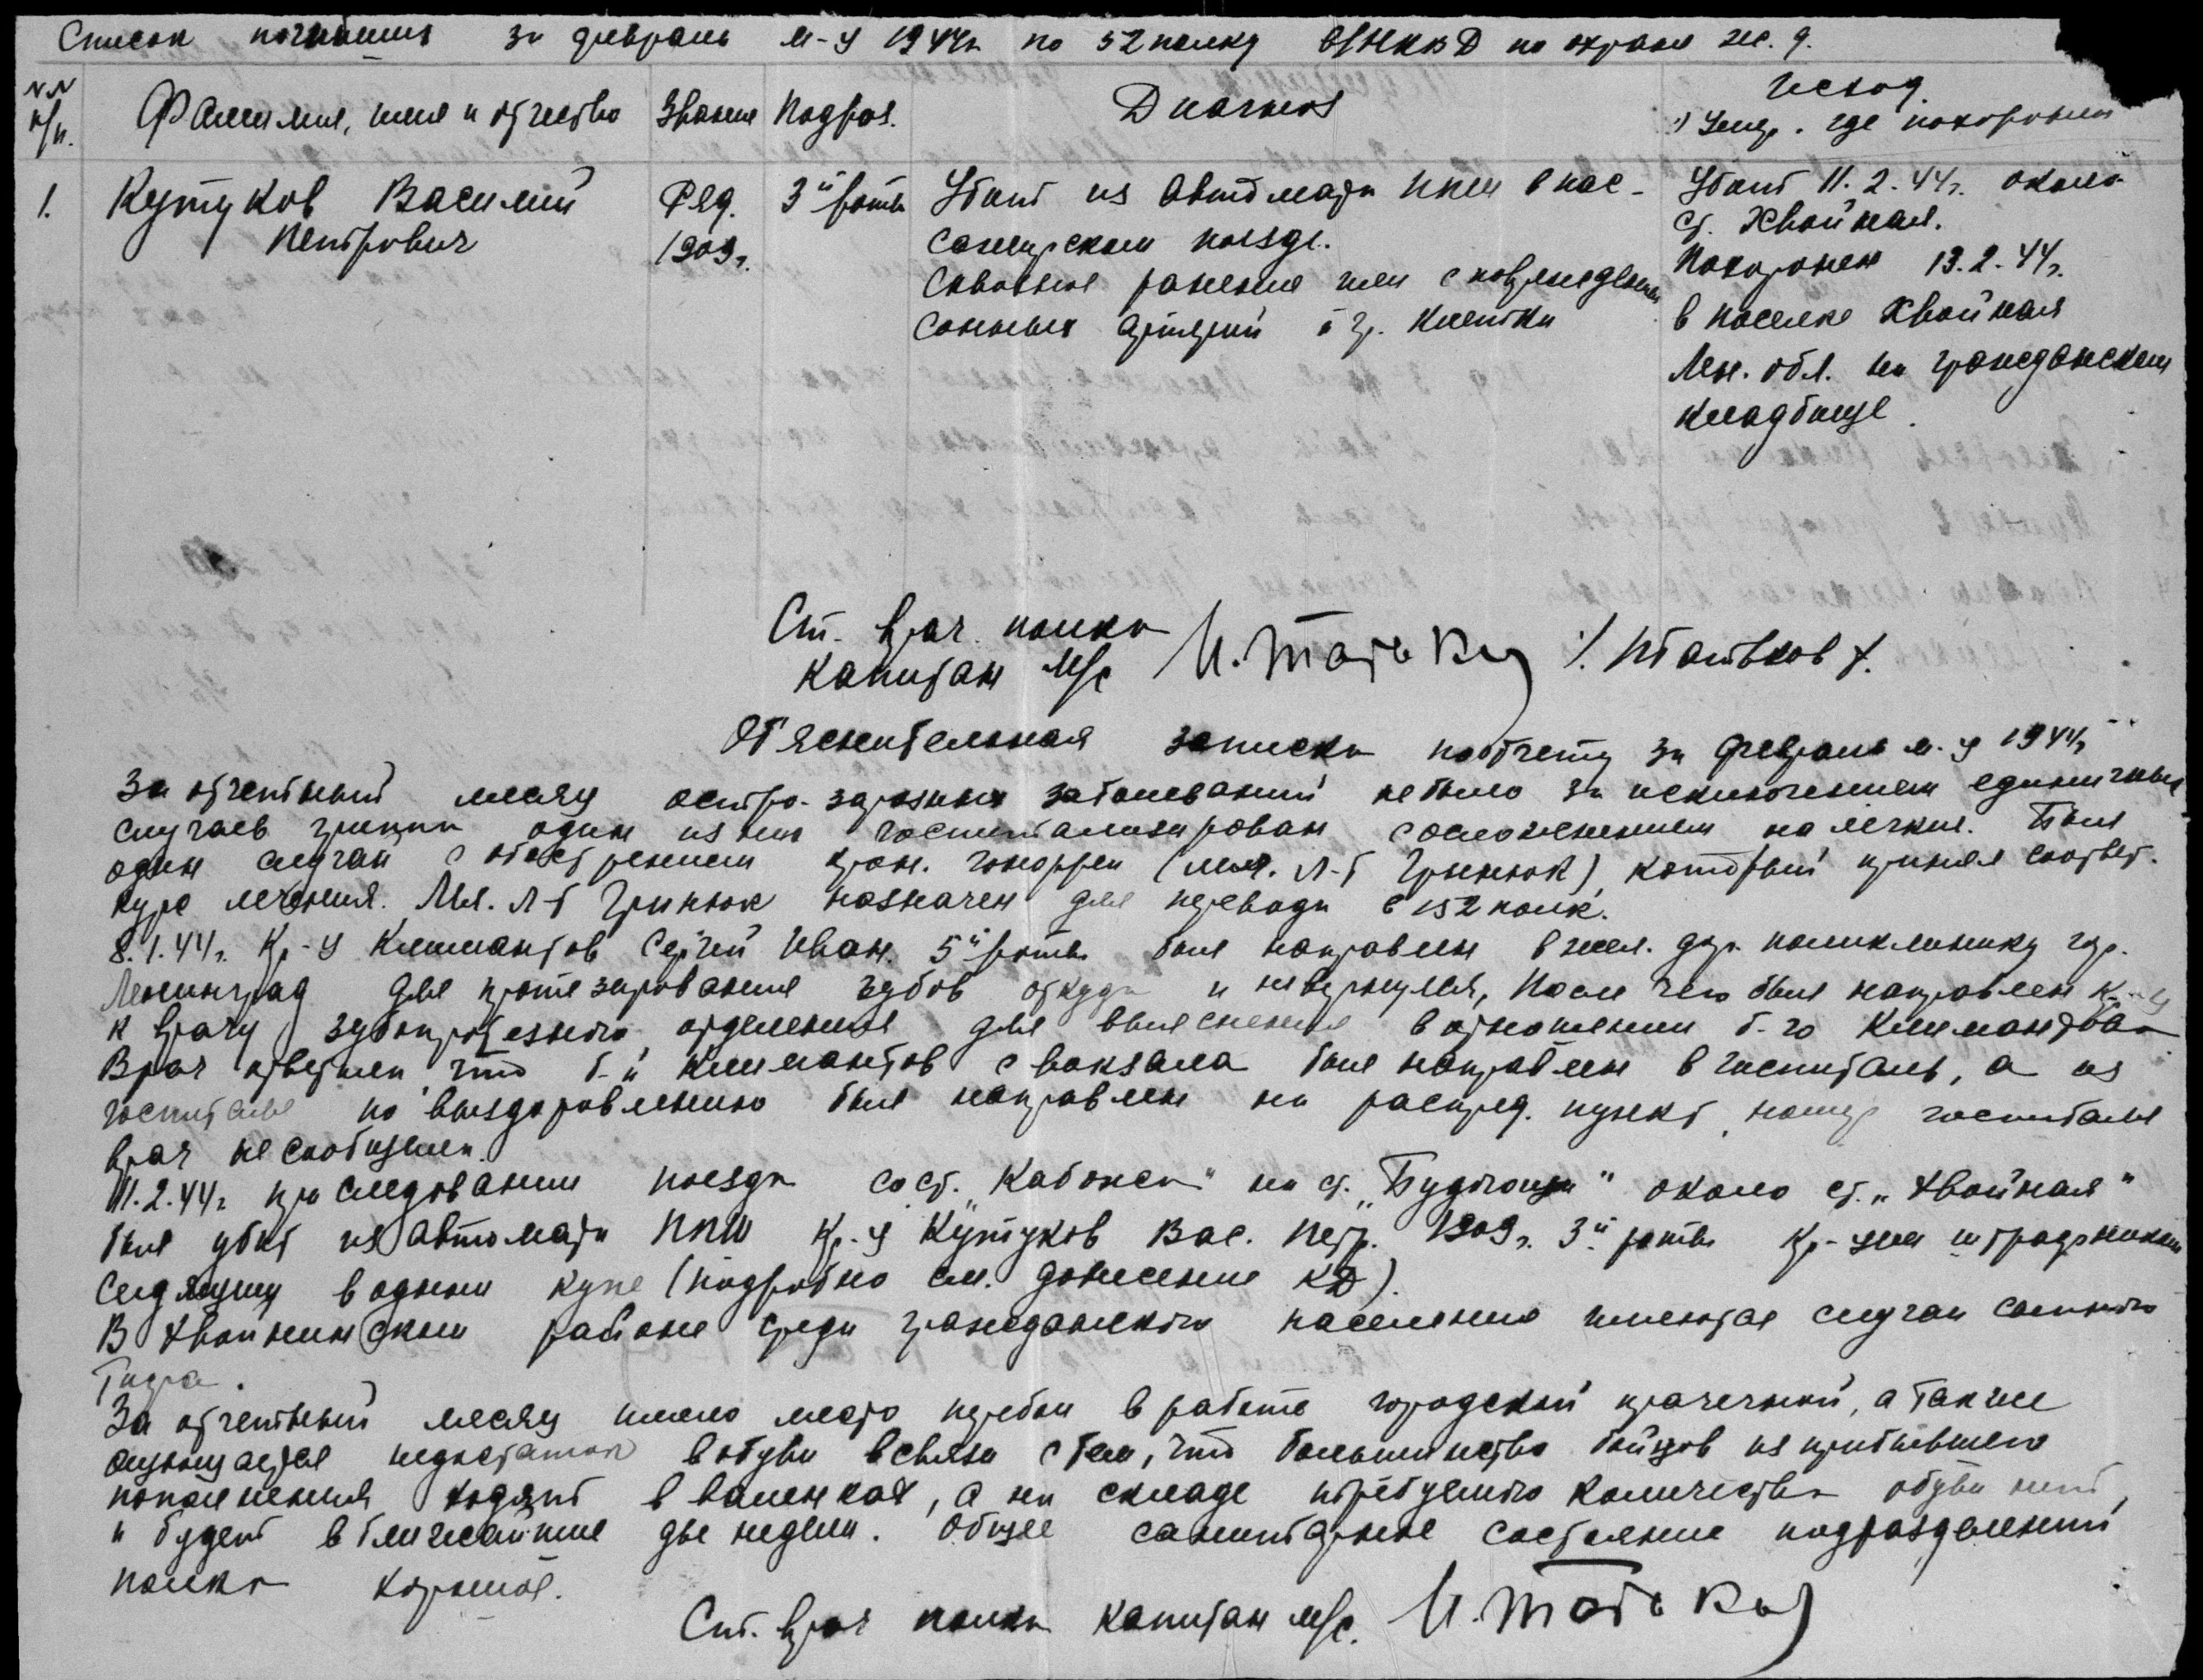 Список погибших за февраль м-ц 1944г. по 52 полку в/НКВД по охране ж. д.
№№ п/п. Фамилия, имя и отчество Звание Подраз. Диагноз Исход.
1) Умер. где похоронен
1. Кутуков Василий Ряд. 3й роты Убит из автомата ППШ в пас- Убит 11.2.44г. около
Петрович 1909г. сажирском поезде. ст. Хвойная.
Сквозное ранение шеи с повреждением Похоронен 13.2.44г.
сонных артерий и гр. клетки в поселке Хвойная
Лен. обл. на гражданском
кладбище.
Ст. врач полка
Капитан м/с /Татьков/.
Об'яснительная записка по отчету за февраль м-ц 1944г.
За отчетный месяц остро-заразных заболеваний не было за исключением единичных
случаев гриппа один из них госпитализирован с осложнением на легкие. Был
один случай с обострением хрон. гонорреи (мл. л-т Гринюк), который принял соответ.
курс лечения. Мл. л-т Гринюк назначен для перевода в 152 полк.
8.1.44г. Кр-ц Климантов Сергей Иван. 5й роты был направлен в жел. дор. поликлинику гор.
Ленинград для протезирования зубов откуда и не вернулся, после чего был направлен кр-ц
к врачу зубопротезного отделения для выяснения в отношении б-го Климантова
Врач ответил что б-й Климантов с вокзала был направлен в госпиталь, а из
госпиталя по выздоровлению был направлен на распред. пункт, номер госпиталя
врач не сообщил.
11.2.44г. при следовании поезда со ст. „Кабожа" на ст. „Будогощь" около ст. „Хвойная"
был убит из автомата ППШ Кр-ц Кутуков Вас. Петр. 1909г. 3й роты кр-цем
сидящим в одном купе (подробно см. донесение КД).
В Хвойнинском районе среди гражданского населения имеются случаи сыпного
тифа.
За отчетный месяц имело место перебои в работе городской прачечной, а также
ощущается недостаток в обуви в связи с тем, что большинство бойцов из прибывшего
пополнения ходят в валенках, а на складе потребуемого количества обуви нет,
и будет в ближайшие две недели. Общее санитарное состояние подразделений
полка хорошое.
Ст. врач полка капитан м/с.